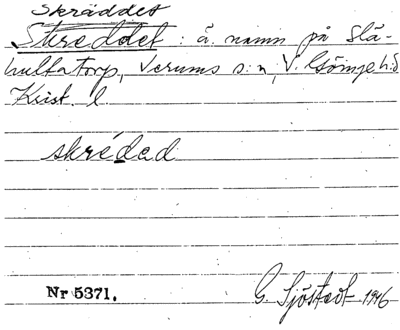 Skräddet
Skreddet : ä. namn på Slä-
hultatorp, Verums s:n, V. Göinge h:d
Krist. l
skrédəd
Nr 5371.
G. Sjöstedt 1946